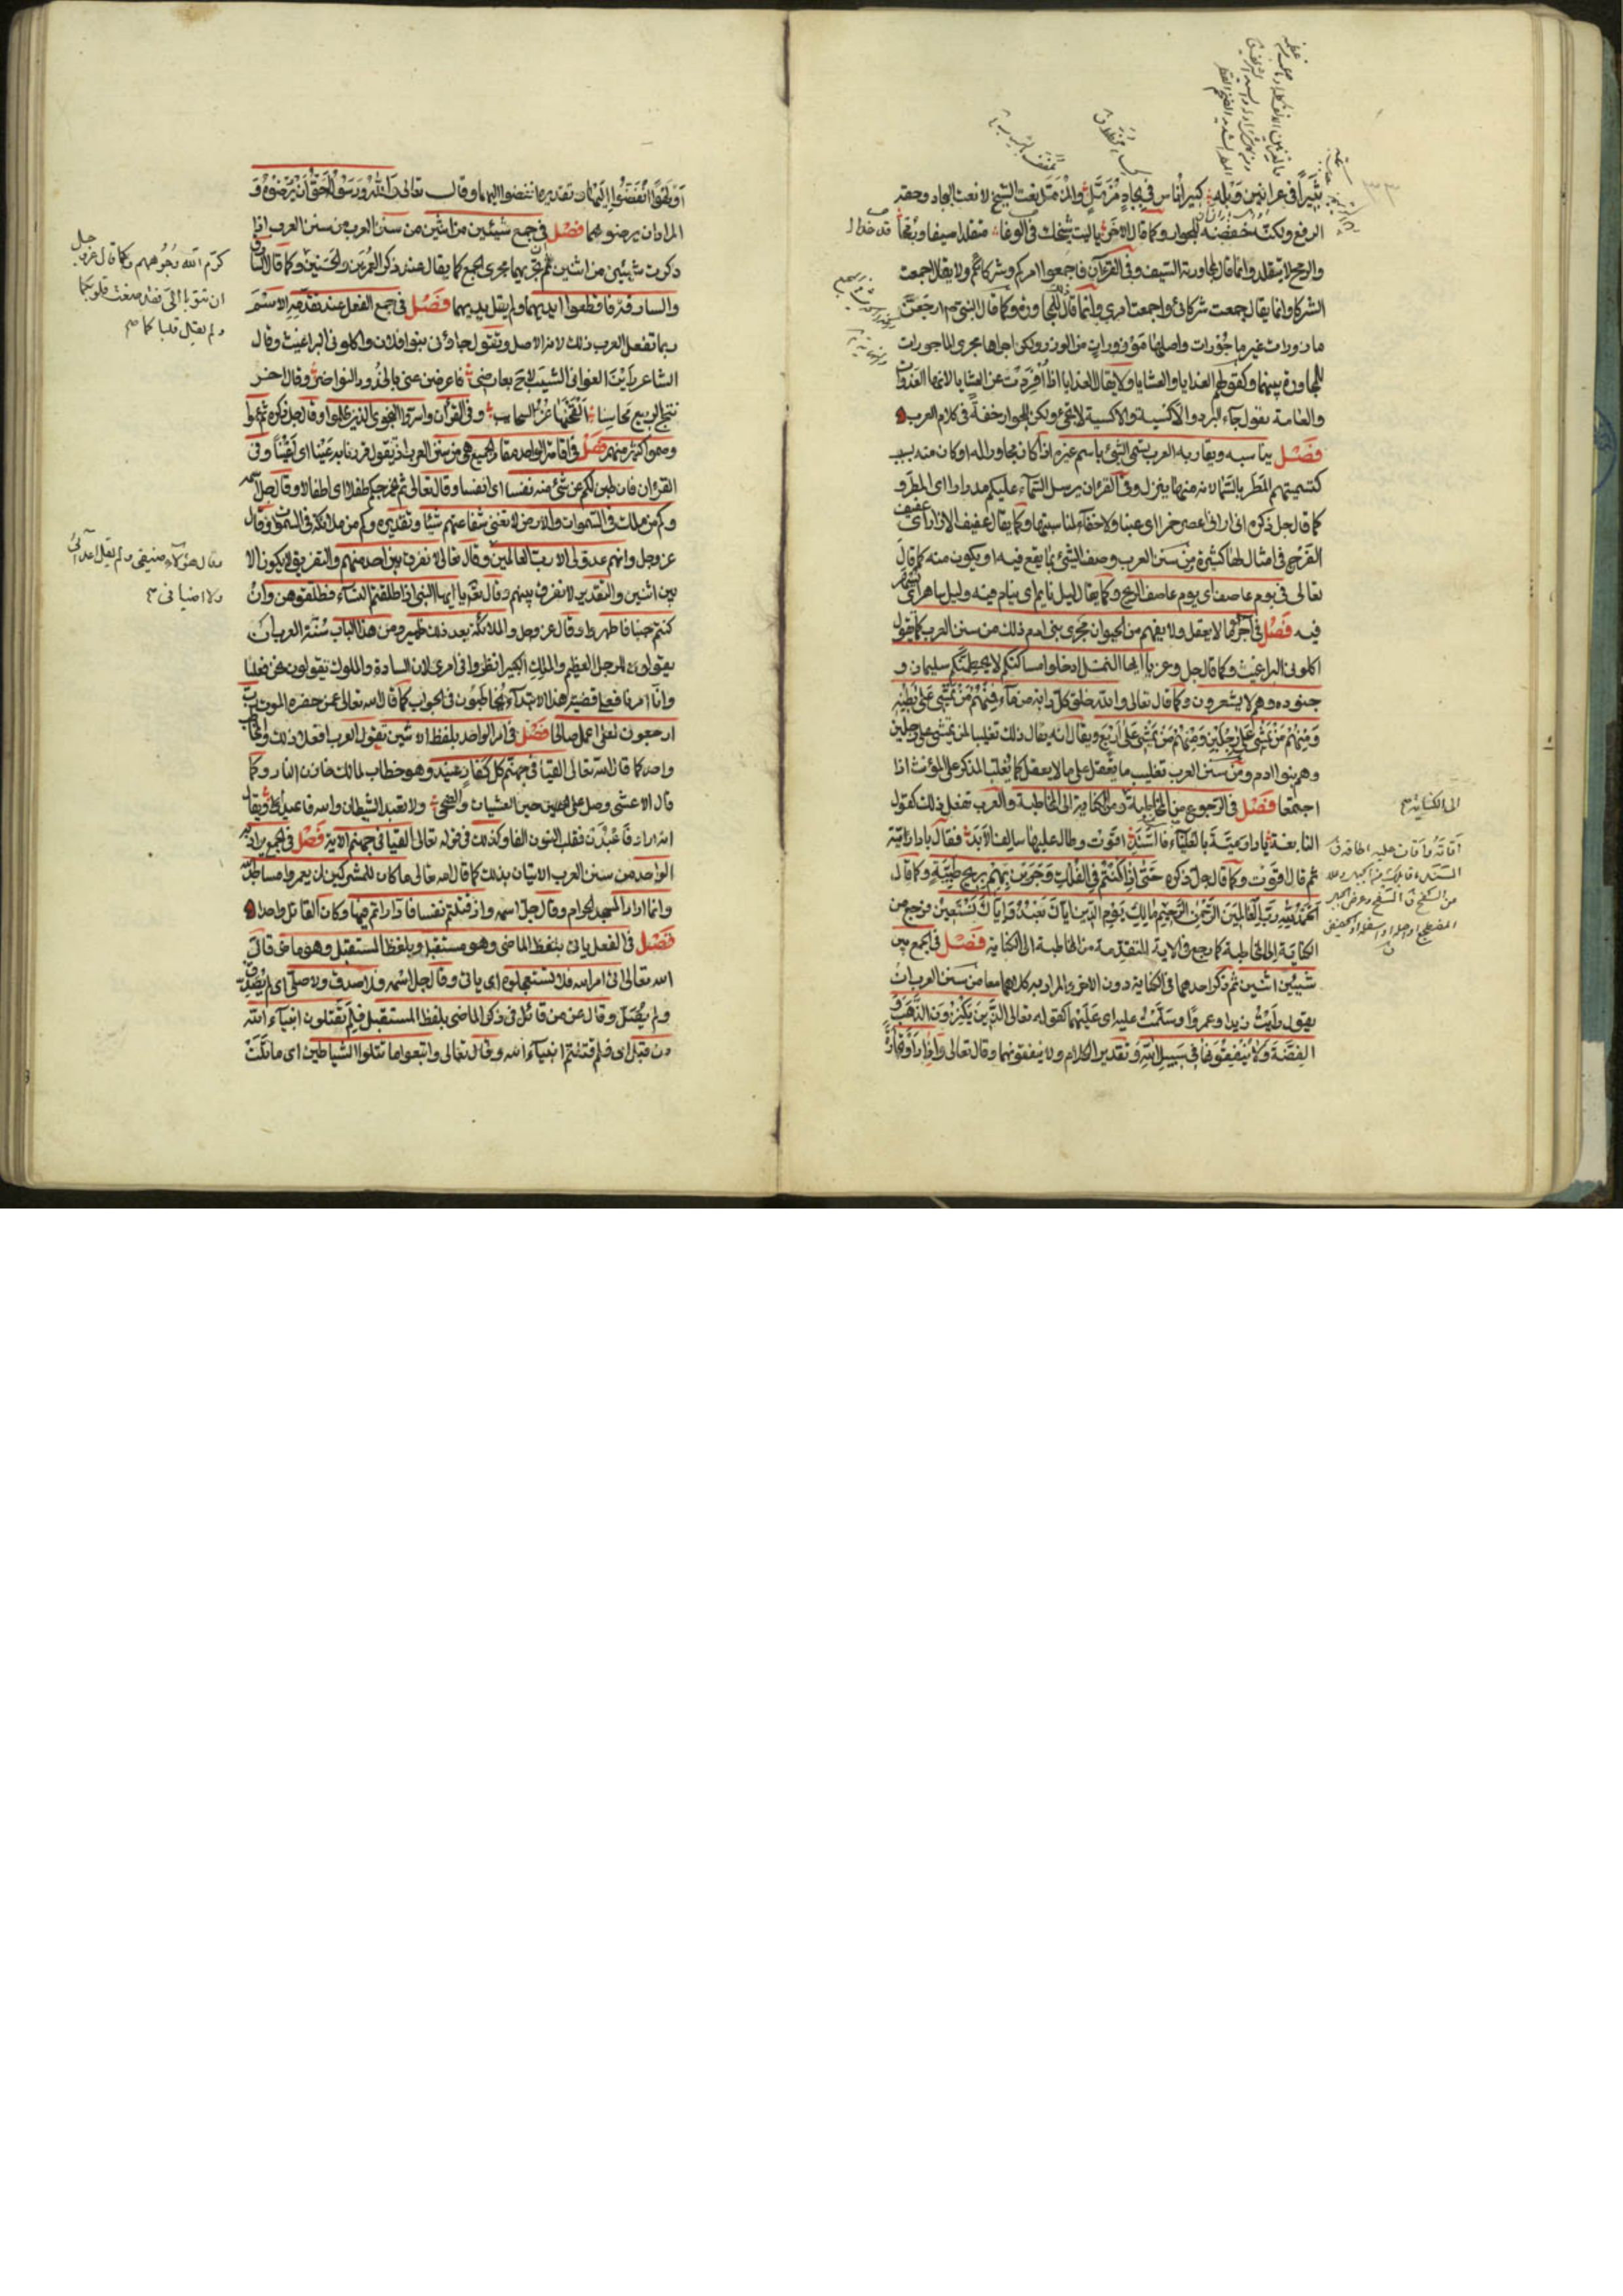 ثبيرا في عرانين وبله كبير أناس في بجاد مزمل والمزمل نعت الشيخ لا نعت البجاد وحقه
الرفع ولكنه خفضه للجوار وكما قال الاخر يا ليت شيخك في الوغا متقلدا سيفا ورمحا
والرمح لا يتقلد وانما قال لمجاورته السيف وفي القرآن فاجمعوا امركم وشركاءكم ولا يقال اجمعت
الشركا وانما يقال جمعت شركائي واجمعت امري وانما قال ذلك للمجاورة وكما قال النبي ارجعن
مازورات غير ماجورات واصلها موزورات من الوزر ولكن اجراها مجرى الماجورات
للمجاورة بينهما وكقولهم الغدايا والعشايا ولا يقال الغدايا اذا أفردت عن العشايا لانها الغدوات
والعامة يقول جاء البرد والاكسية والاكسية لا تجيء ولكن للجوار خفة في كلام العرب
فصل يناسبه ويقاربه العرب تسمي الشيء باسم غيره اذا كان مجاورا له او كان منه بسبب
كتسميتهم المطر بالسماء لانه منها ينزل وفي القرءان يرسل السماء عليكم مدرارا اى المطر و
كما قال جل ذكره اني اراني اعصر خمرا اى عنبا ولا خفاء لمناسبتهما وكما يقال عفيف الازار اى عفيف
الفرج في امثال لها كثيرة من سنن العرب وصف الشيء بما يقع فيه او يكون منه كما قال
تعالى في يوم عاصف اى يوم عاصف الريح وكما يقال ليل نايم اى ينام فيه وليل ساهر اى يسهر
فيه فصل في اجراء ما لا يعقل ولا يفهم من الحيوان مجرى بني ادم ذلك من سنن العرب كما تقول
اكلوني البراغيث وكما قال جل وعز يا ايها النمل ادخلوا مساكنكم لا يحطمنكم سليمان و
جنوده وهم لا يشعرون وكما قال تعالى والله خلق كل دابة من ماء فمنهم من يمشي على بطنه
ومنهم من يمشي على رجلين ومنهم من يمشي على اربع ويقال انه يقال ذلك تغليبا لمن يمشي على رجلين
وهم بنوا ادم ومن سنن العرب تغليب ما يعقل على ما لا يعقل كما يغلب المذكر على المؤنث اذا
اجتمعا فصل في الرجوع من المخاطبة الى الكناية ومن الكناية الى المخاطبة والعرب تفعل ذلك كقول
النابغة يا دار مية بالعلياء فالسند اقوت وطال عليها سالف الابد فقال يا دار مية
ثم قال اقوت وكما قال جل ذكره حتى اذا كنتم في الفلك وجرين بهم بريح طيبة وكما قال
الحمد لله رب العالمين الرحمن الرحيم مالك يوم الدين اياك نعبد واياك نستعين فرجع من
الكناية الى المخاطبة كما رجع في الاية المتقدمة من المخاطبة الى الكناية فصل في الجمع بين
شيئين اثنين ثم ذكر احدهما في الكناية دون الاخر والمراد به كلاهما معا من سنن العرب ان
يقول رايت زيدا وعمروا وسلمت عليه اى عليهما كقوله تعالى الذين يكنزون الذهب و
الفضة ولا ينفقونها في سبيل الله وتقدير الكلام ولا ينفقونهما وقال تعالى واذا رأوا تجارة
الى الكناية صح
أو لهوا انفضوا اليها وتقديره انفضوا اليهما وقال تعالى والله ورسوله احق ان يرضوه و
المراد ان يرضوهما فصل في جمع شيئين من اثنين من سنن العرب اذا
ذكرت شيئين من اثنين ثم تجريهما مجرى الجمع كما يقال عند ذكر العمرين والحسنين وكما قال
والسارقة فاقطعوا ايديهما ولم يقل يديهما فصل في جمع الفعل عند تقدمه الاسم
ربما تفعل العرب ذلك لانه الاصل وتقول جاؤني بنوا فلان واكلوني البراغيث وقال
الشاعر رأين الغواني الشيب لاح بعارضي فاعرضن عني بالخدود النواضر وقال اخر
نتج الربيع محاسنا القحنها غر السحايب وفي القرآن واسروا النجوى الذين ظلموا وقال جل ذكره ثم عموا
وصموا كثير منهم فصل في اقامة الواحد مقام الجميع هي من سنن العرب اذ يقول قررنا به عينا اى اعينا وفي
القرءان فان طبن لكم عن شيء منه نفسا اى انفسا وقال تعالى ثم يخرجكم طفلا اى اطفالا وقال جل
وكم من ملك في السموات والارض لا تغني شفاعتهم شيئا وتقديره وكم من ملائكة في السموات وقال
عز وجل وانهم عدو لي الا رب العالمين وقال تعالى لا نفرق بين احد منهم والتفريق لا يكون الا
بين اثنين والتقدير لا نفرق بينهم وقال يا ايها النبي اذا طلقتم النساء فطلقوهن وان
كنتم جنبا فاطهروا وقال عز وجل والملائكة بعد ذلك ظهير ومن هذا الباب سنة العرب ان
يقولون للرجل العظيم والملك الكبير انظروا في امري لان السادة والملوك تقولون نحن فعلنا
وانا امرنا فعلى قضية هذا الابتداء يخاطبون في الجواب كما قال الله تعالى عمن حضره الموت رب
ارجعون لعلي اعمل صالحا فصل في امر الواحد بلفظ الاثنين تقول العرب افعلا ذلك والمخاطب
واحد كما قال الله تعالى القيا في جهنم كل كفار عنيد وهو خطاب لمالك خازن النار وكما
قال الاعشى وصل على حين العشيات والضحى ولا تعبد الشيطان والله فاعبدا ويقال
انه اراد فاعبدن فقلب النون الفا وكذلك في قوله تعالى القيا في جهنم الاية فصل في الجمع يراد به
الواحد من سنن العرب الاتيان بذلك كما قال الله تعالى ما كان للمشركين ان يعمروا مساجد الله
وانما اراد المسجد الحرام وقال جل اسمه واذ قتلتم نفسا فادارأتم فيها وكان القاتل واحدا
فصل في الفعل ياتي بلفظ الماضي وهو مستقبل وبلفظ المستقبل وهو ماض قال
الله تعالى اتى امر الله فلا تستعجلوه اى ياتي وقال جل اسمه فلا صدق ولا صلى اى لم يصدق
ولم يصل وقال عز من قائل في ذكر الماضي بلفظ المستقبل فلم تقتلون انبياء الله
من قبل اى فلم قتلتم انبياء الله وقال تعالى واتبعوا ما تتلوا الشياطين اى ما تلت
كرم الله وجوههم وكما قال عز وجل
ان تتوبا الى الله فقد صغت قلوبكما
ولم يقل قلباكما صح
وقال هؤلاء ضيفي ولم يقل اعدائي
ولا اضيافي صح